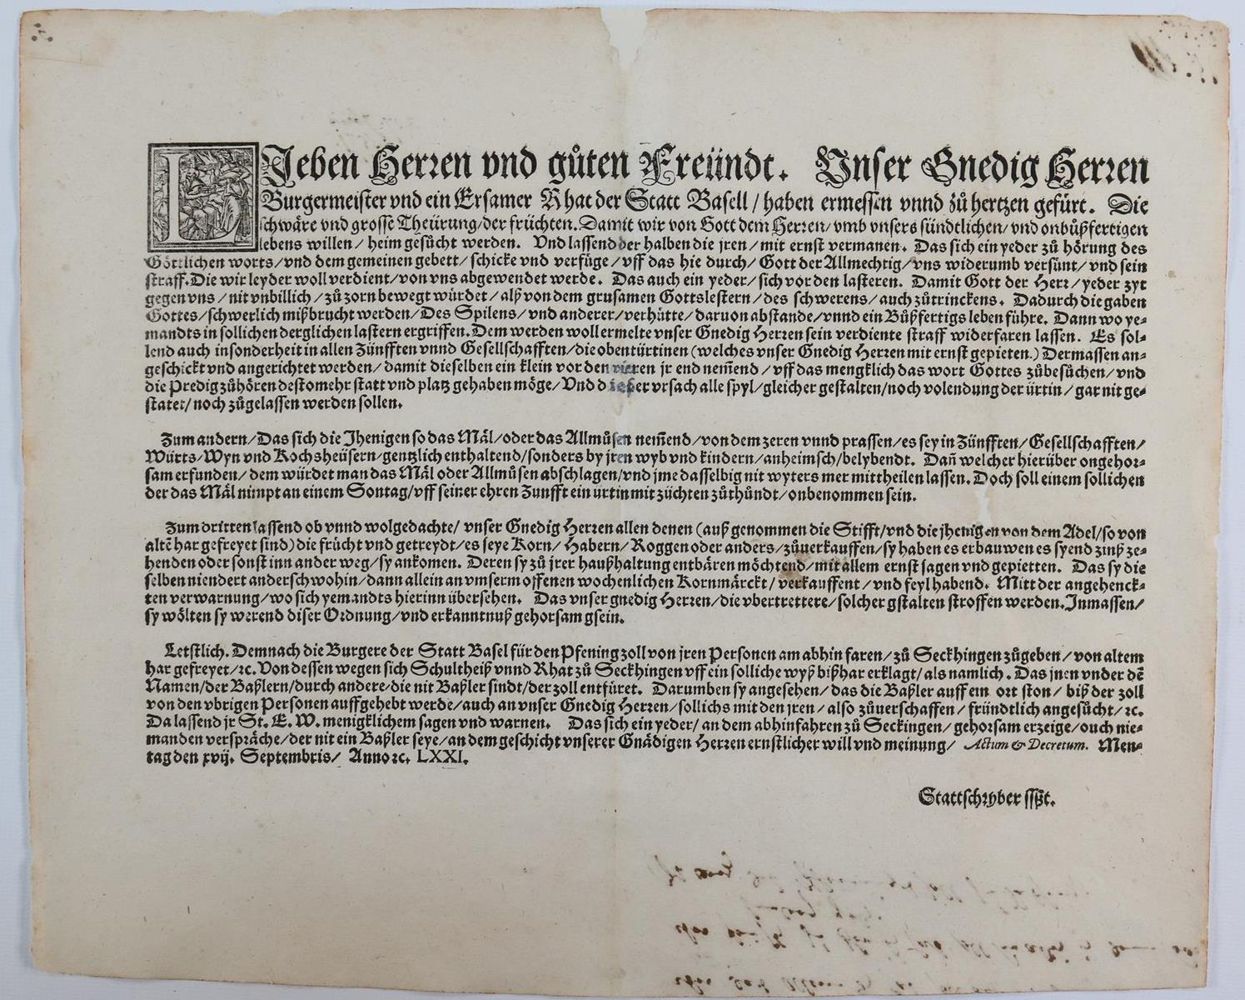 LIeben Herren vnd gůten Freündt. Vnser Gnedig Herren
Burgermeister vnd ein Ersamer Rhat der Statt Basell / haben ermessen vnnd zů hertzen gefürt. Die
schwäre vnd grosse Theürung / der früchten. Damit wir von Gott dem Herren / vmb vnsers sündtlichen / vnd onbůßfertigen
lebens willen / heimgesůcht werden. Vnd lassend der halben die jren / mit ernst vermanen. Das sich ein yeder zů hörung des
Göttlichen worts / vnd dem gemeinen gebett / schicke vnd verfüge / vff das hie durch / Gott der Allmechtig / vns widerumb versünt / vnd sein
straff. Die wir leyder woll verdient / von vns abgewendet werde. Das auch ein yeder / sich vor den lasteren. Damit Gott der Herr / yeder zyt
gegen vns / nit vnbillich / zů zorn bewegt würdet / alß von dem grusamen Gottslestern / des schwerens / auch zůtrinckens. Dadurch die gaben
Gottes / schwerlich mißbrucht werden / Des Spilens / vnd anderer / verhütte / daruon abstande / vnnd ein Bůßfertigs leben führe. Dann wo ye-
mandts in sollichen derglichen lastern ergriffen. Dem werden woll ermelte vnser Gnedig Herren sein verdiente straff widerfaren lassen. Es sol-
lend auch insonderheit in allen Zünfften vnnd Gesellschafften / die obentürtinen (welches vnser Gnedig Herren mit ernst gepieten.) Dermassen an-
geschickt vnd angerichtet werden / damit dieselben ein klein vor den vieren jr end nem̄end / vff das mengklich das wort Gottes zůbesůchen / vnd
die Predig zůhören destomehr statt vnd platz gehaben möge / Vnd dieser vrsach alle spyl / gleicher gestalten / noch volendung der ürtin / gar nit ge-
statet / noch zůgelassen werden sollen.
Zum andern / Das sich die Jhenigen so das Mäl / oder das Allmůsen nem̄end / von dem zeren vnnd prassen / es sey in Zünfften / Gesellschafften /
Würts / Wyn vnd Kochsheüsern / gentzlich enthaltend / sonders by jren wyb vnd kindern / anheimsch / belybendt. Dan̄ welcher hierüber ongehor-
sam erfunden / dem würdet man das Mäl oder Allmůsen abschlagen / vnd jme dasselbig nit wyters mer mittheilen lassen. Doch soll einem sollichen
der das Mäl nimpt an einem Sontag / vff seiner ehren Zunfft ein urtin mit züchten zůthůndt / onbenommen sein.
Zum dritten lassend ob vnnd wolgedachte / vnser Gnedig Herren allen denen (auß genommen die Stifft / vnd die jhenigen von dem Adel / so von
altē har gefreyet sind) die frücht vnd getreydt / es seye Korn / Habern / Roggen oder anders / zůuerkauffen / sy haben es erbauwen es syend zinß ze-
henden oder sonst inn ander weg / sy ankomen. Deren sy zů jrer haußhaltung entbären möchtend / mit allem ernst sagen vnd gepietten. Das sy die
selben niendert anderschwohin / dann allein an vmserm offenen wochenlichen Kornmärckt / verkauffent / vnd feyl habend. Mitt der angehenck-
ten verwarnung / wo sich yemandts hierinn übersehen. Das vnser gnedig Herren / die vbertrettere / solcher gstalten stroffen werden. Inmassen /
sy wölten sy werend diser Ordnung / vnd erkanntnuß gehorsam gsein.
Letstlich. Demnach die Burgere der Statt Basel für den Pfening zoll von jren Personen am abhin faren / zů Seckhingen zůgeben / von altem
har gefreyet / ꝛc. Von dessen wegen sich Schultheiß vnnd Rhat zů Seckhingen vff ein solliche wyß bißhar erklagt / als namlich. Das jnen vnder dē
Namen / der Baßlern / durch andere / die nit Baßler sindt / der zoll entfüret. Darumben sy angesehen / das die Baßler auff ein ort ston / biß der zoll
von den vbrigen Personen auffgehebt werde / auch an vnser Gnedig Herren / sollichs mit den jren / also zůuerschaffen / fründtlich angesůcht / ꝛc.
Da lassend jr St. E. W. menigklichem sagen vnd warnen. Das sich ein yeder / an dem abhinfahren zů Seckingen / gehorsam erzeige / ouch nie-
manden verspräche / der nit ein Baßler seye / an dem geschicht vnserer Gnädigen Herren ernstlicher will vnd meinung / Actum & Decretum. Men-
tag den xvij. Septembris / Anno ꝛc. LXXI.
Stattschryber sspt.